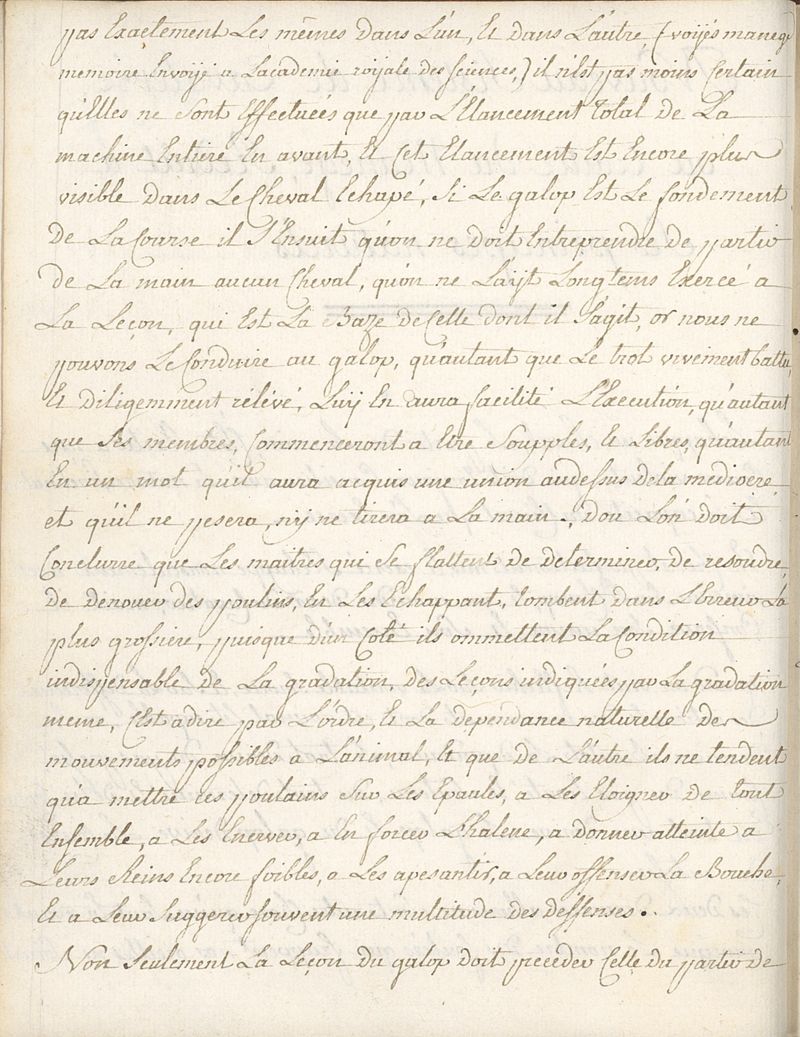 pas Exactement Les mêmes dans L'un, Et dans L'autre (voyés manege
memoire Envoyé a L'academie royale des sciences,) il n'est pas moins Certain
qu'Elles ne sont Effectuées que par L'Elancement total de La
machine Entiere En avant, Et Cet Elancement Est Encore plus
visible dans Le Cheval Echapé, si Le galop Est Le fondement
De La Course il s'Ensuit qu'on ne doit Entreprendre de partir
de La main aucun Cheval, qu'on ne L'ayt Longtems Exercé a
La Leçon, qui Est La Baze de Celle dont il s'agit, or nous ne
pouvons Le Conduire au galop, qu'autant que Le trot vivement battu,
Et diligemment rélévé, Luy En aura facilité L'Execution, qu'autant
que ses membres, Commenceront a Etre soupples, Et Libres, qu'autant
En un mot qu'il aura acquis une union audessus de la mediocre
et qu'il ne pesera, ny ne tirera a La main., dou L'on doit
Conclurre que Les maitres qui se flattent de determiner, de resoudre,
de denouer des poulins, En Les Echappant, tombent dans L'Erreur La
plus grossiere, puisque d'un Coté ils ommettent La Condition
indispensable de La gradation, des Leçons indiquées par La gradation
meme, C'est adire par L'ordre, Et La dependance naturelle des
mouvements possibles a L'animal, Et que de L'autre ils ne tendent
qu'a mettre ces poulains sur Les Epaules, a Les Eloigner de tout
Ensemble, a Les Enerver, a En forcer L'halene, a donner atteinte a
Leurs Reins Encore foibles, a Les apesantir, a Leur offenser La Bouche,
Et a Leur suggerer souvent une multitude des deffenses..
Non seulement La Leçon du galop doit preceder Celle du partir de